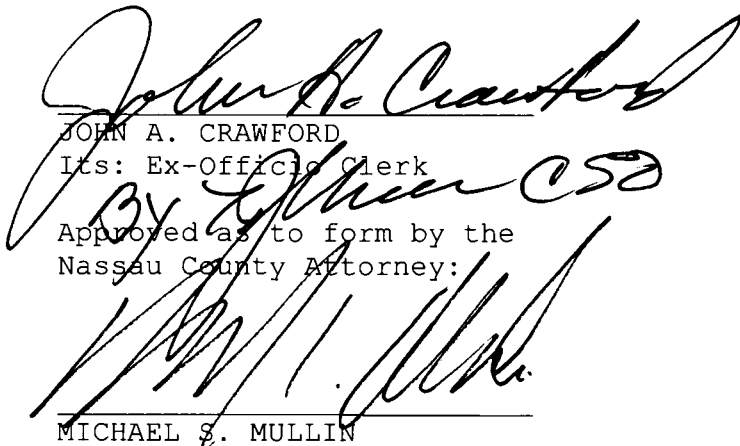 John A. Crawford
JOHN A. CRAWFORD
Its: Ex-Officio Clerk
By
Approved as to form by the
Nassau County Attorney:
MICHAEL S. MULLIN